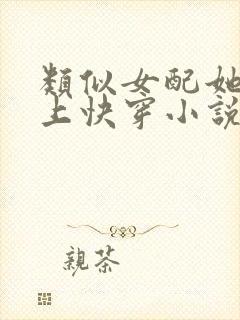 類似女配她
上快穿小說
親茶